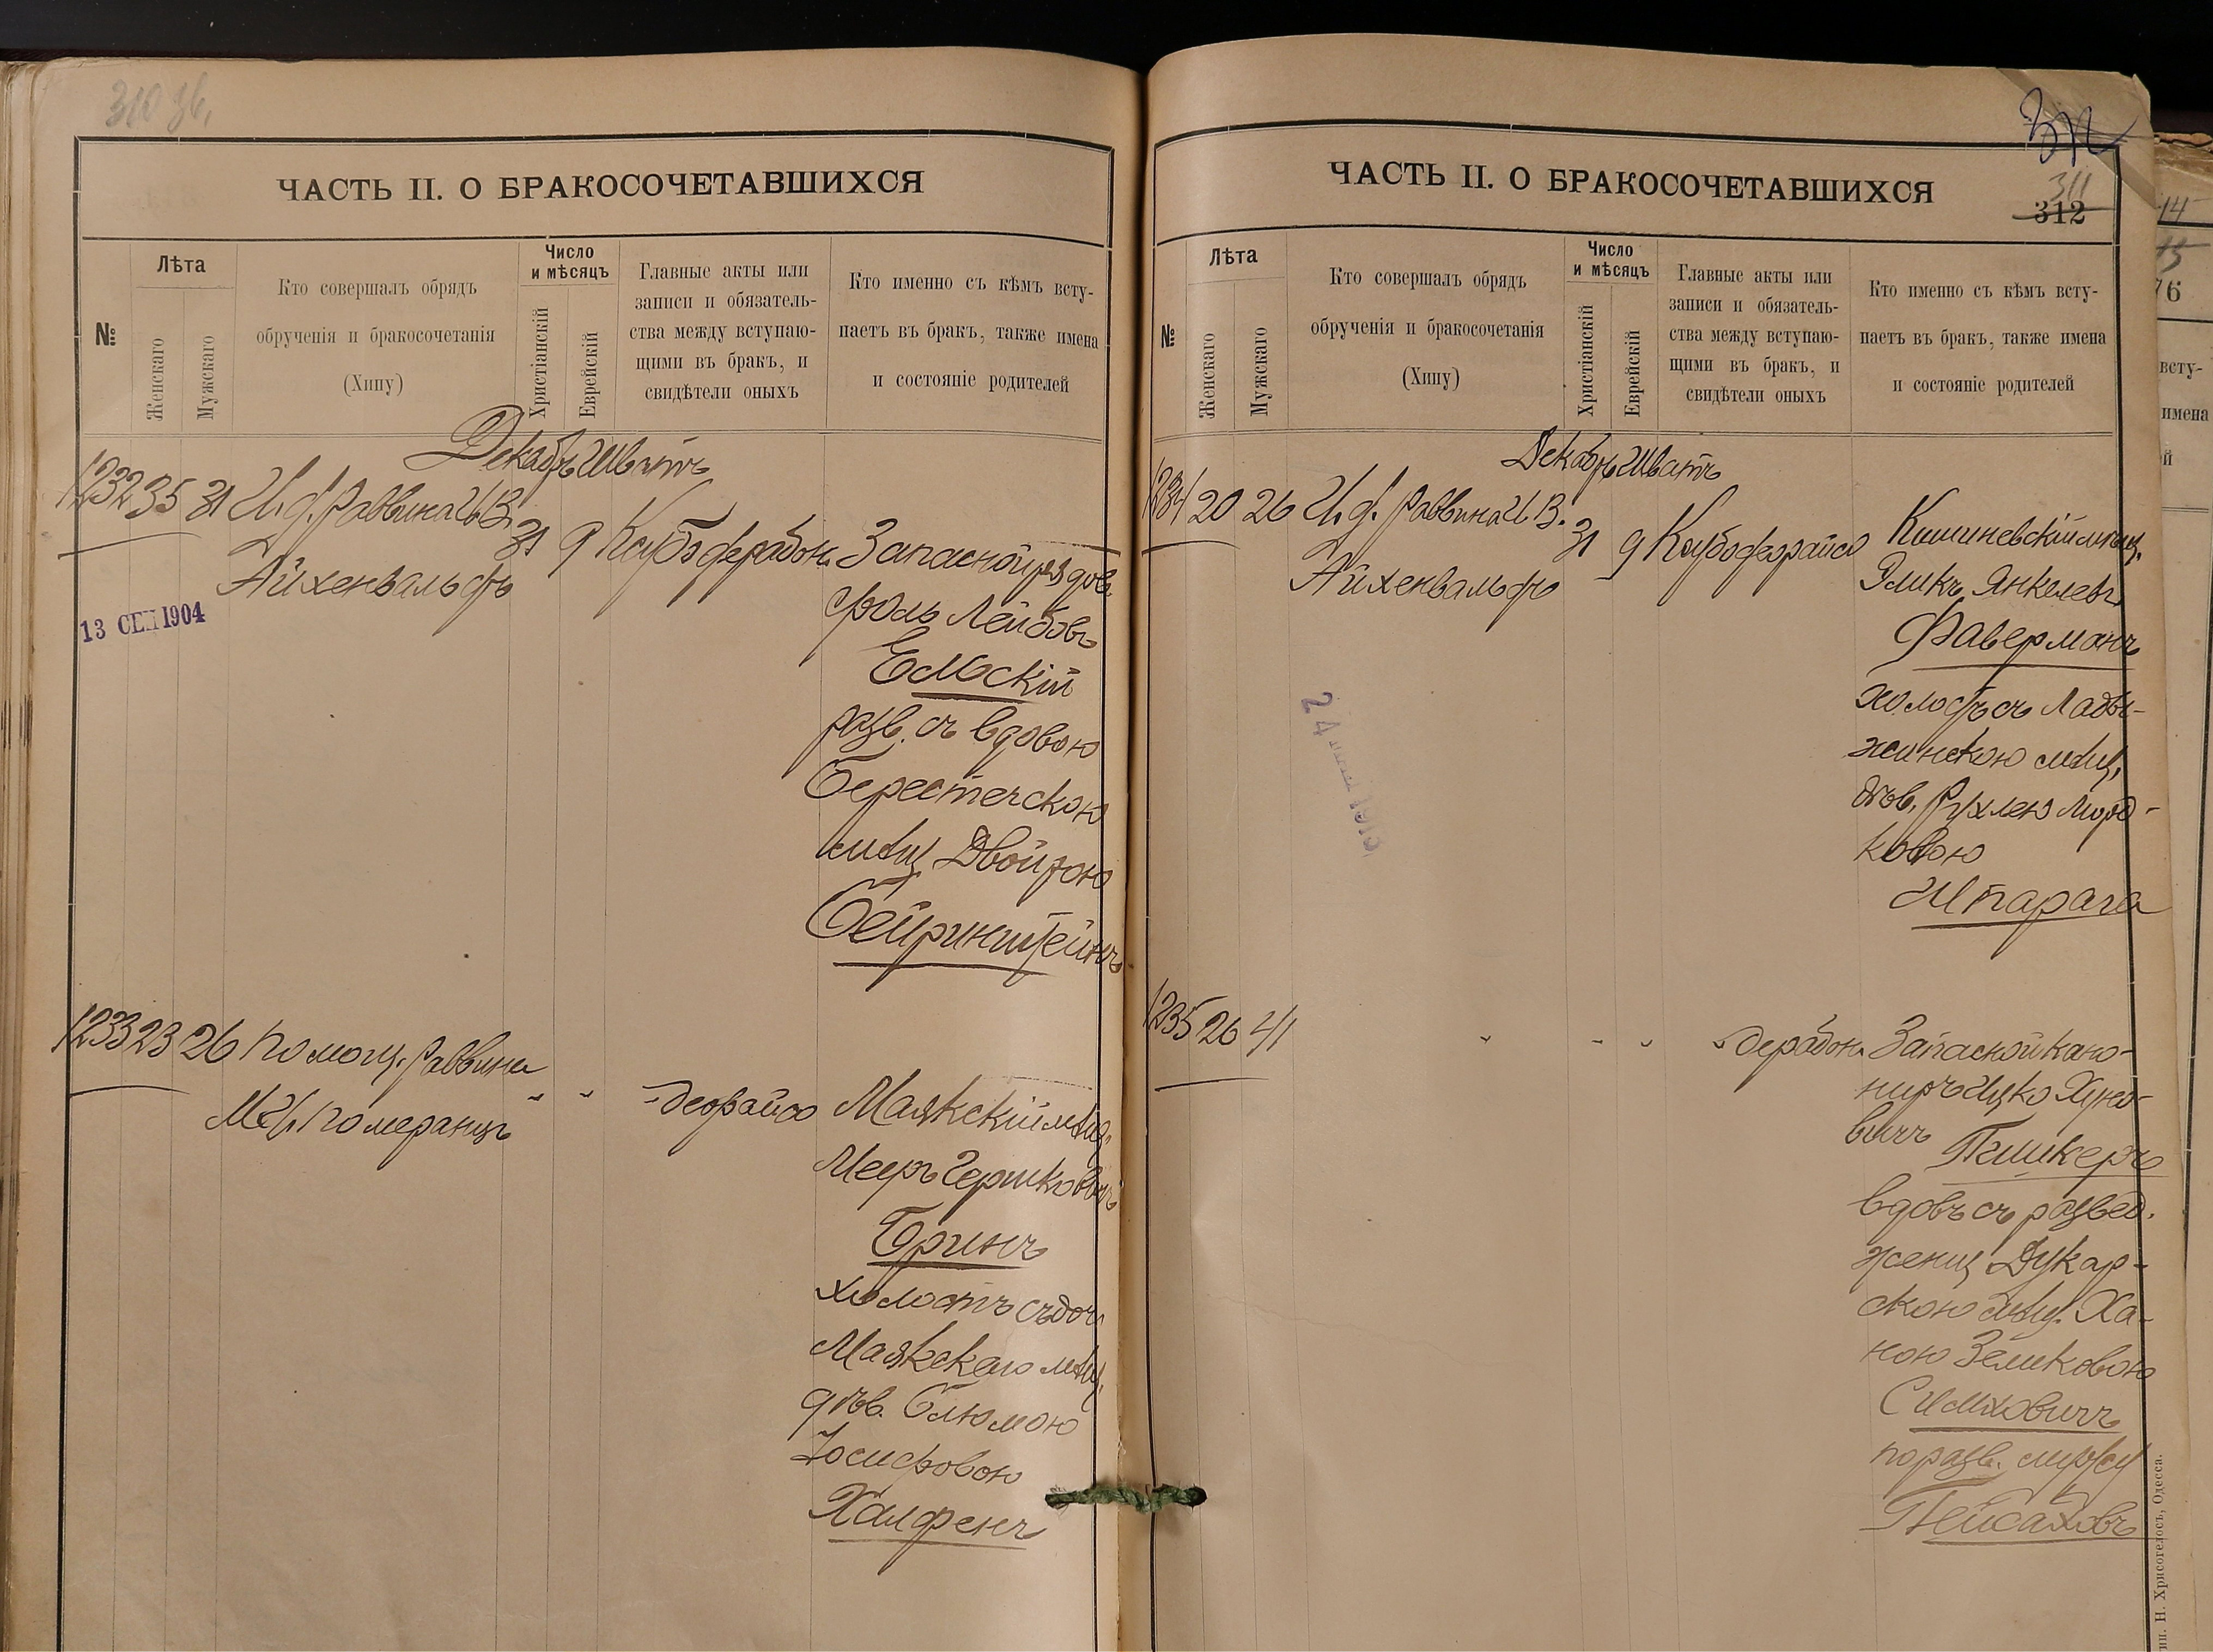 310 зв.
ЧАСТЬ II. О БРАКОСОЧЕТАВШИХСЯ
№
Лѣта
Женскаго
Мужскаго
Кто совершалъ обрядъ
обрученія и бракосочетанія
(Хипу)
Число
и мѣсяцъ
Христіанскій
Еврейскій
Главные акты или
записи и обязатель-
ства между вступаю-
щими въ бракъ, и
свидѣтели оныхъ
Кто именно съ кѣмъ всту-
паетъ въ бракъ, также имена
и состояніе родителей
Декабрь Шватъ
1232 35 31 И. д. Раввина И. В.
Айхенвальдъ
31 9
13 СЕП 1904
Запасной
Сроль Лейбовъ
Ельскій
разв. съ вдовою
Берестечскою
мѣщ. Двойрою
Бейринштейнъ
1233 23 26 Помощ. Раввина
М. И. Померанцъ
" " "
деорайсо
Маякскій мѣщ.
Мееръ Гершковичъ
Бринъ
холостъ съ доч.
Маякскаго мѣщ.
дѣв. Блюмою
Іосифовою
Халфенъ
312
311
312
ЧАСТЬ II. О БРАКОСОЧЕТАВШИХСЯ
№
Лѣта
Женскаго
Мужскаго
Кто совершалъ обрядъ
обрученія и бракосочетанія
(Хипу)
Число
и мѣсяцъ
Христіанскій
Еврейскій
Главные акты или
записи и обязатель-
ства между вступаю-
щими въ бракъ, и
свидѣтели оныхъ
Кто именно съ кѣмъ всту-
паетъ въ бракъ, также имена
и состояніе родителей
Декабрь Шватъ
1234 20 26 И. д. Раввина И. В.
Айхенвальдъ
31 9
Кишиневскій мѣщ.
Эликъ Янкелевъ
Фаверманъ
холостъ съ Лады-
жинскою мѣщ.
дѣв. Рухлею Морд-
ковою
Шпарага
1235 26 41
" " " "
дерабон.
Запасной кано-
ниръ Ицко Хуно-
вичъ Пиикеръ
вдовъ съ развед.
женщ. Дукар-
скою мѣщ. Ха-
ною Зеликовою
Симховичъ
по разв. мужу
Пейсаховъ
тип. Н. Хрисогелосъ, Одесса.